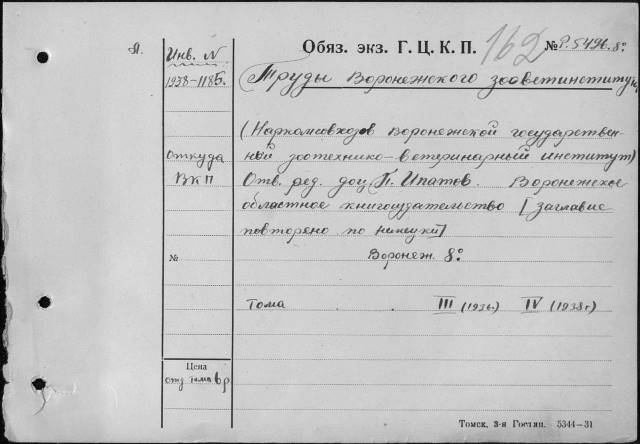 Л.
Инв. N
1938-1185.
Обяз. экз. Г. Ц. К. П. 162 № P. 5496. 8°
Труды Воронежского зооветинститута
(Наркомсовхозов Воронежской государствен-
ный зоотехнико-ветеринарный институт)
откуда
ВКП
Отв. ред. доц П. Ипатов. Воронежское
областное книгоиздательство [заглавие
повторено по немецки]
Воронеж. 8°
№
Тома . . III (1936г.) IV (1938г)
Цена
отд тома в р
Томск, 3-я Гостип. 5344—31